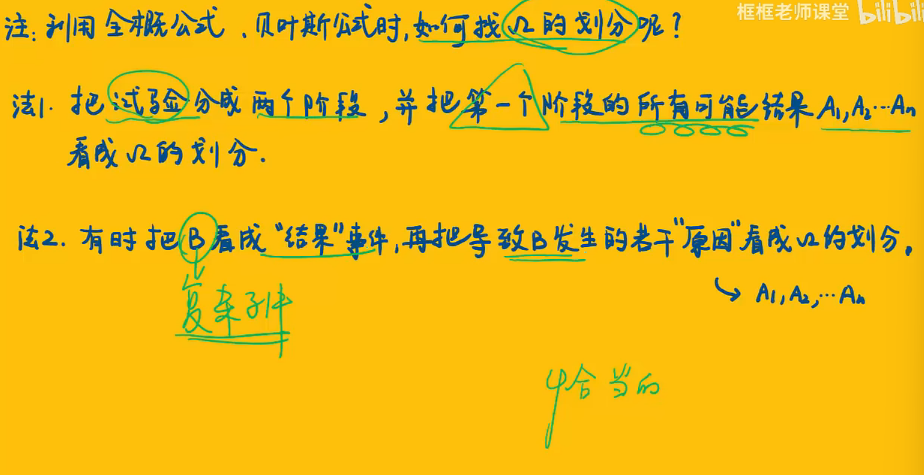 框框老师课堂 bilibili
注:利用全概公式、贝叶斯公式时,如何找Ω的划分呢?
法1. 把试验分成两个阶段,并把第一个阶段的所有可能结果A₁,A₂…Aₙ
看成Ω的划分.
法2. 有时把B看成“结果”事件,再把导致B发生的若干“原因”看成Ω的划分。
↳ A₁,A₂,…Aₙ
复杂事件
恰当的